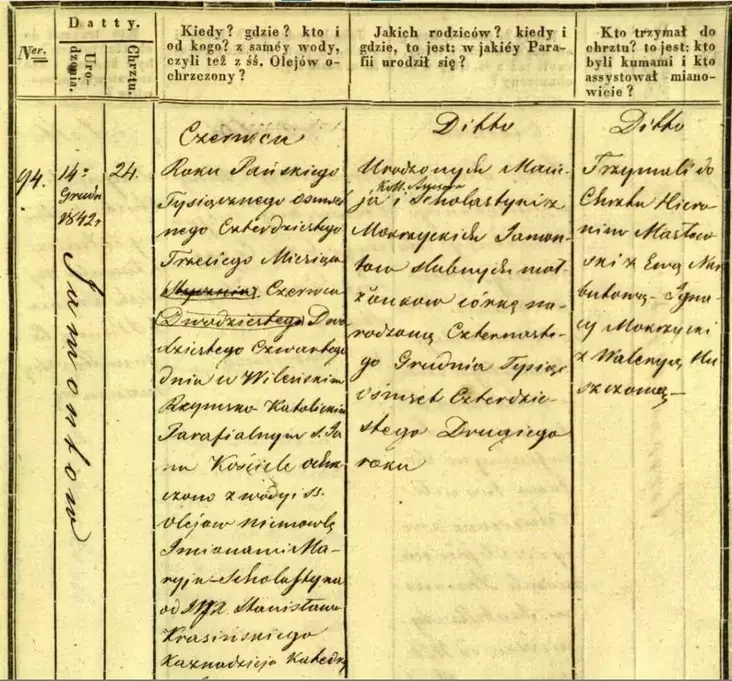 Ner.
Datty.
Uro-
dzenia.
Chrztu.
Kiedy? gdzie? kto i
od kogo? z saméy wody,
czyli też z śś. Olejów o-
chrzczony?
Jakich rodziców? kiedy i
gdzie, to jest: w jakiéy Para-
fii urodził się?
Kto trzymał do
chrztu? to jest: kto
byli kumami i kto
assystował miano-
wicie?
94.
14o
Grudn
1842r
Jamontow
24.
Czerwca
Roku Pańskiego
Tysiącznego osmse-
tnego Czterdziestego
Trzeciego Miesiąca
Stycznia Czerwca
Dwadziestego Dwa
dziestego Czwartego
dnia w Wileńskim
Rzymsko Katolickim
Parafialnym S. Ja
na Kościele ochrz-
czono z wody i SS.
Olejow niemowlę
Imionami Ma-
ryja-Scholastyka
od Stanisława
Krasińskiego
Kaznodzieja Katedry
Ditto
Urodzonych Maci-
ja i Scholastyki z
Mokrzyckich Jamon-
tow slubnych mał
żonkow córkę na-
rodzoną Czternaste-
go Grudnia Tysiąc
Ośmset Czterdzie-
stego Drugiego
roku
Ditto
Trzymali do
Chrztu Hiero-
nim Masłow
ski z Ewą Nar
butową - Igna
cy Mokrzycki
z Waleryą